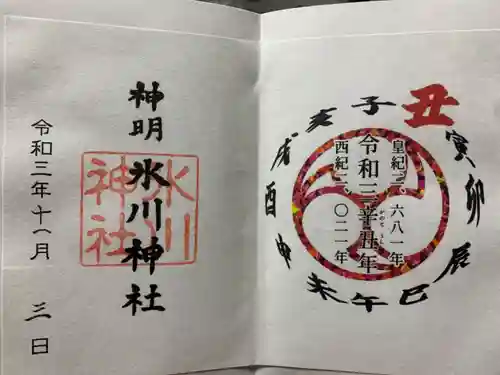 子
丑
寅
卯
辰
巳
午
未
申
酉
戌
亥
皇紀二、六八一年
令和三辛丑年
かのと うし
西紀二、〇二一年
神明
氷川神社
氷川
神社
令和三年十一月 三日